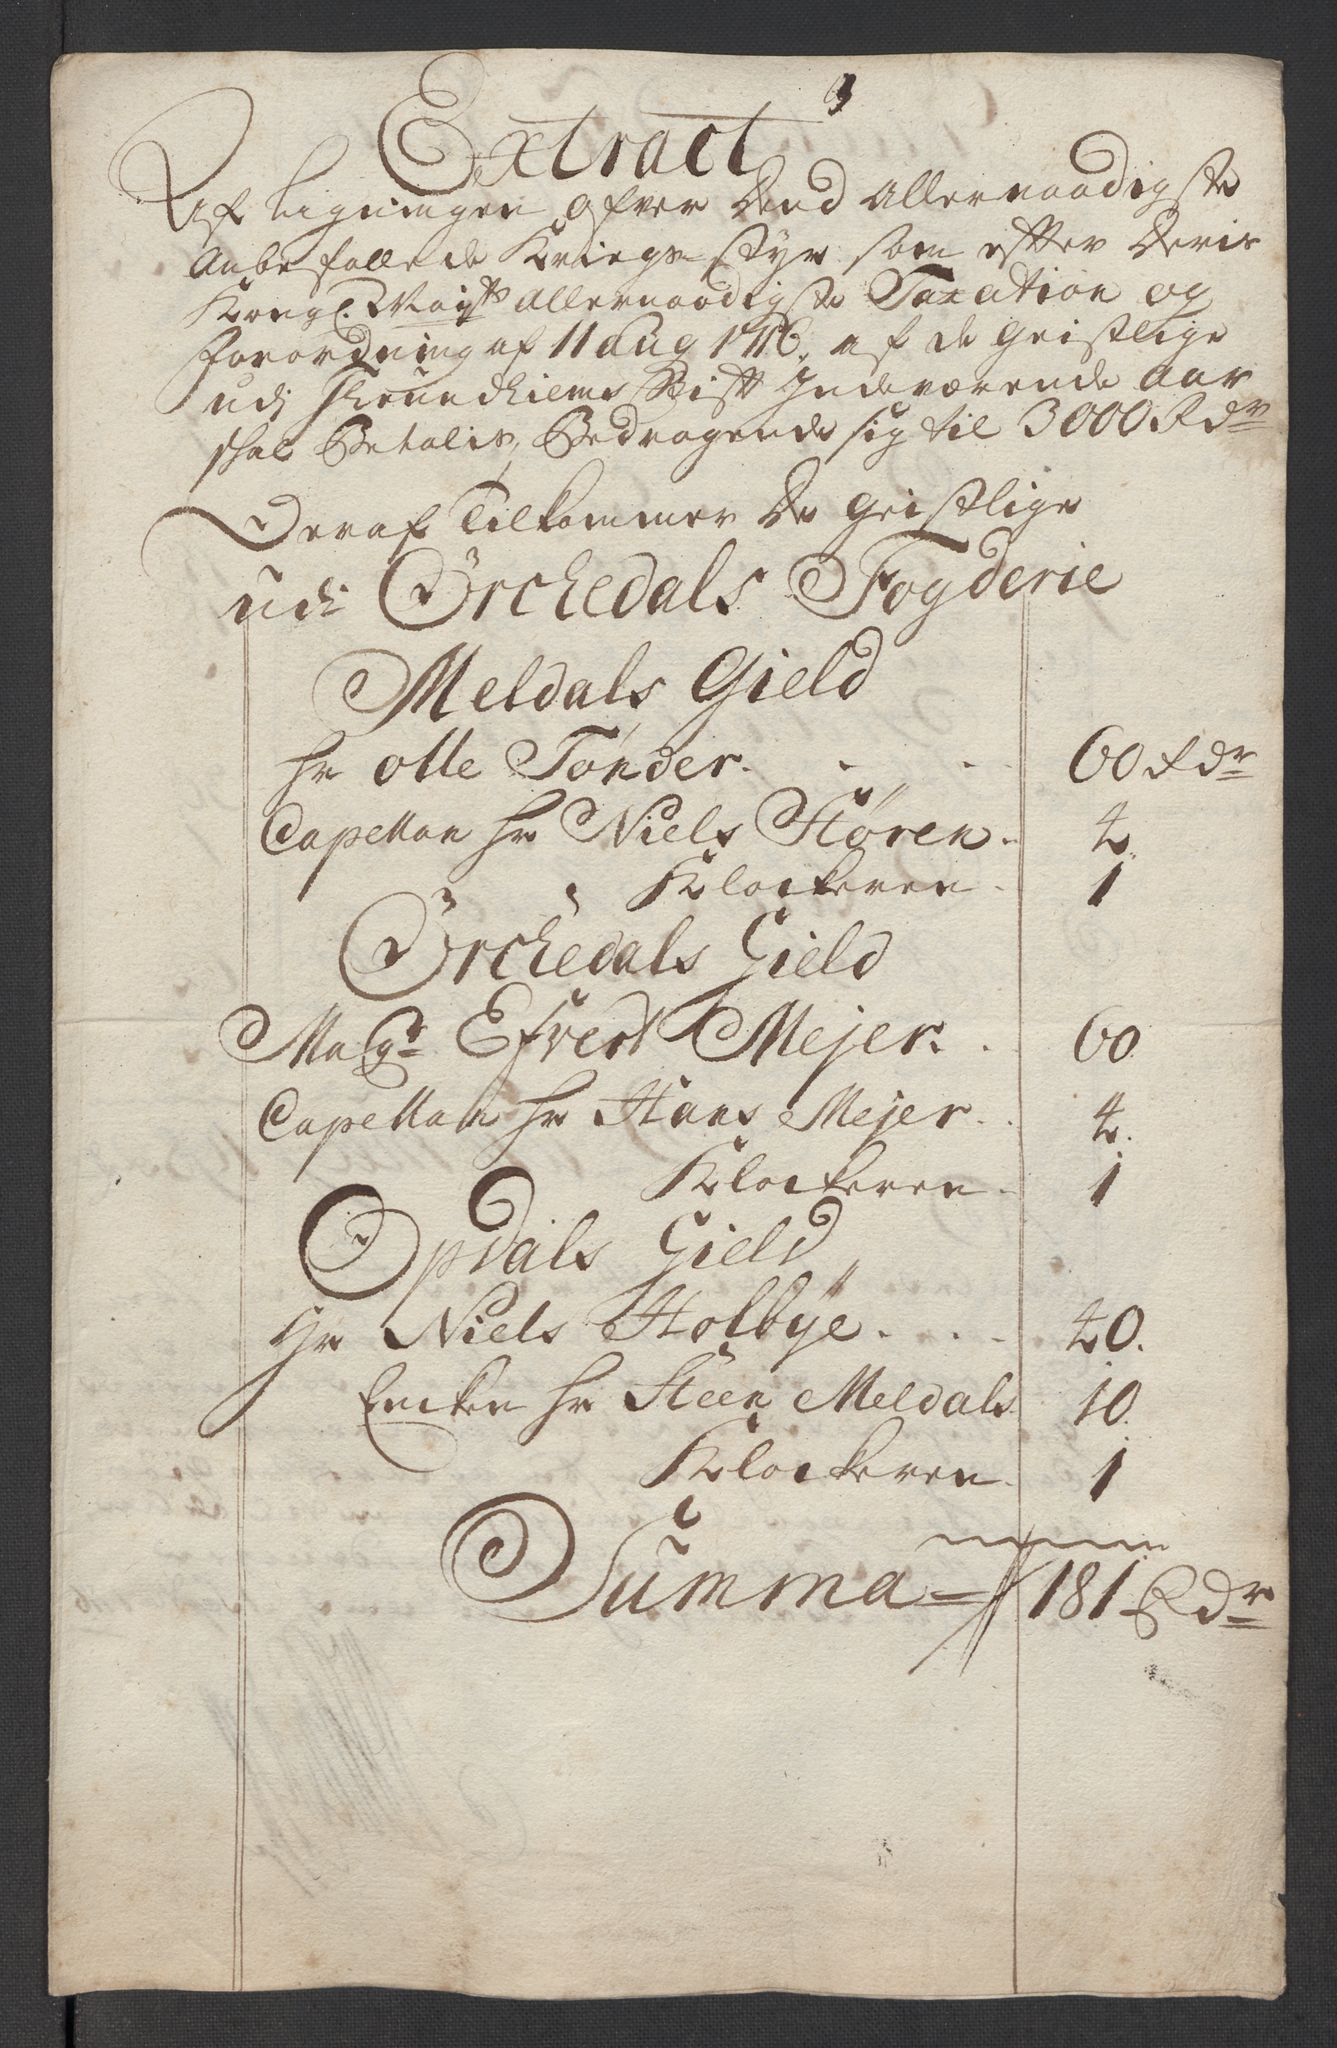 Extract
Af Ligningen ofver Dend Allernaadigste
Anbefallede Kriegs-styr som efter Deris
Kongl. Mayts Allernaadigste Taxation og
Forordning af 11 Aug 1716, af de Geistlige
udi Trundhiems Stift Indeværende Aar
skal Betalis, Bedragende sig til 3000 Rdr
Deraf Tilkommer De Geistlige
udi Örchedals Fogderie
Meldals Gield
Hr Otte Tønder. 60 Rdr
Capellan Hr Niels Støren. 4
Klockeren. 1
Örchedals Gield
Magr Efvert Mejer. 60
Capellan Hr Hans Mejer. 4.
Klockeren. 1
Opdals Gield
Hr Niels Holbye. 40.
Encken Hr Steen Meldals 10.
Klockeren. 1
Summa = 181 Rdr